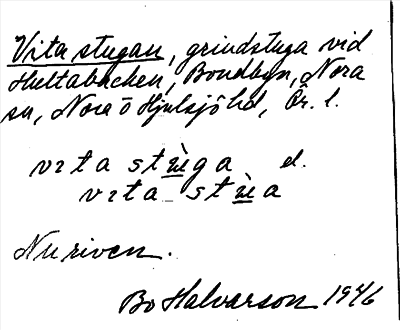 Vita stugan, grindstuga vid
Hultabacken, Bondbyn, Nora
sn, Nora o Hjulsjö hd, Ör. l.
vıta stùga el.
vıta stùa
Nu riven.
Bo Halvarson 1946